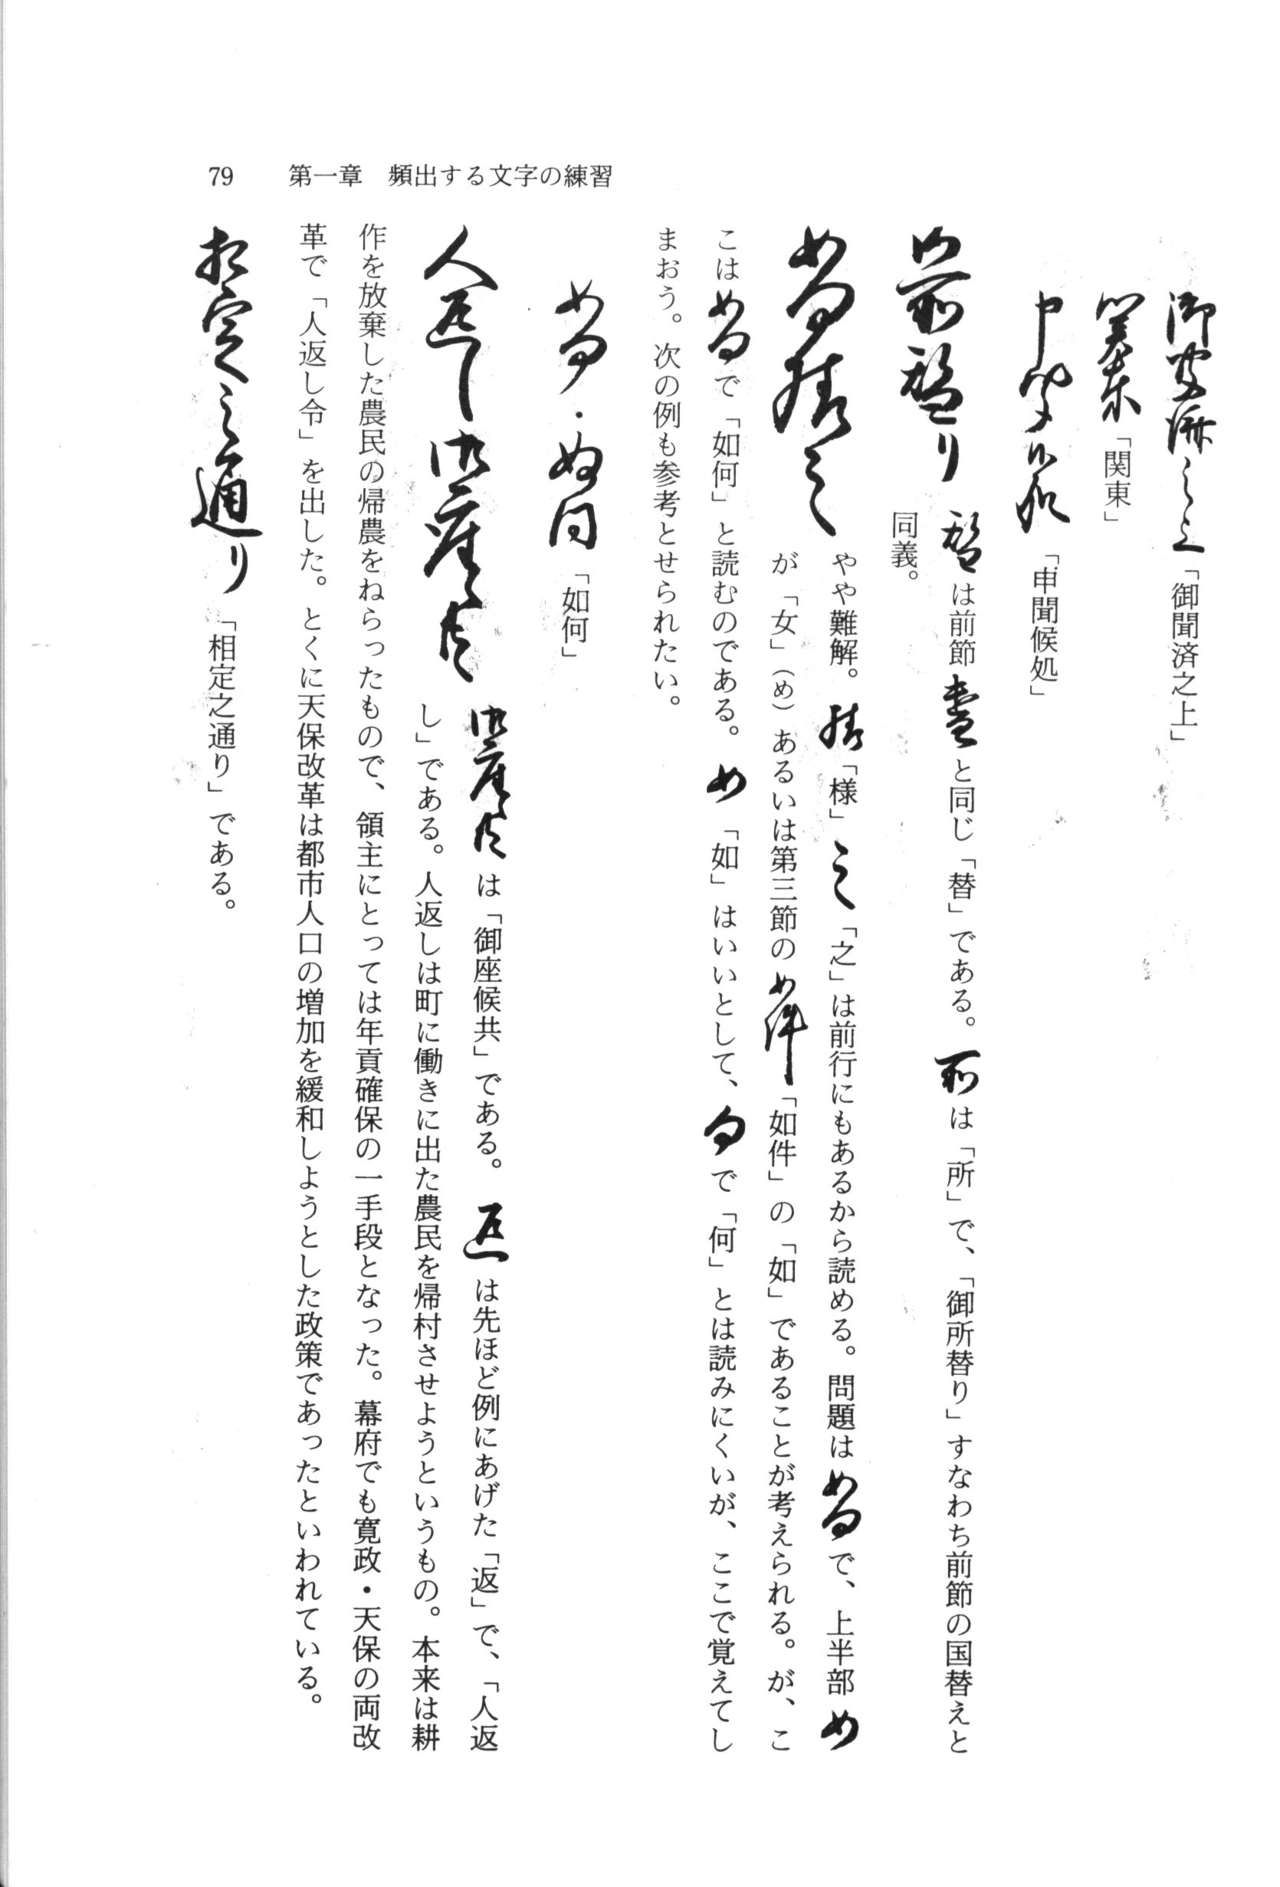 79　第一章　頻出する文字の練習
御聞済之上「御聞済之上」
関東「関東」
申聞候処「申聞候処」
御所替り　替は前節替と同じ「替」である。所は「所」で、「御所替り」すなわち前節の国替えと
同義。
如何様之　やや難解。様「様」之「之」は前行にもあるから読める。問題は如何で、上半部如
が「女」（め）あるいは第三節の如件「如件」の「如」であることが考えられる。が、こ
こは如何で「如何」と読むのである。如「如」はいいとして、何で「何」とは読みにくいが、ここで覚えてし
まおう。次の例も参考とせられたい。
如何・如何「如何」
人返し御座候共　御座候共は「御座候共」である。返は先ほど例にあげた「返」で、「人返
し」である。人返しは町に働きに出た農民を帰村させようというもの。本来は耕
作を放棄した農民の帰農をねらったもので、領主にとっては年貢確保の一手段となった。幕府でも寛政・天保の両改
革で「人返し令」を出した。とくに天保改革は都市人口の増加を緩和しようとした政策であったといわれている。
相定之通り「相定之通り」である。